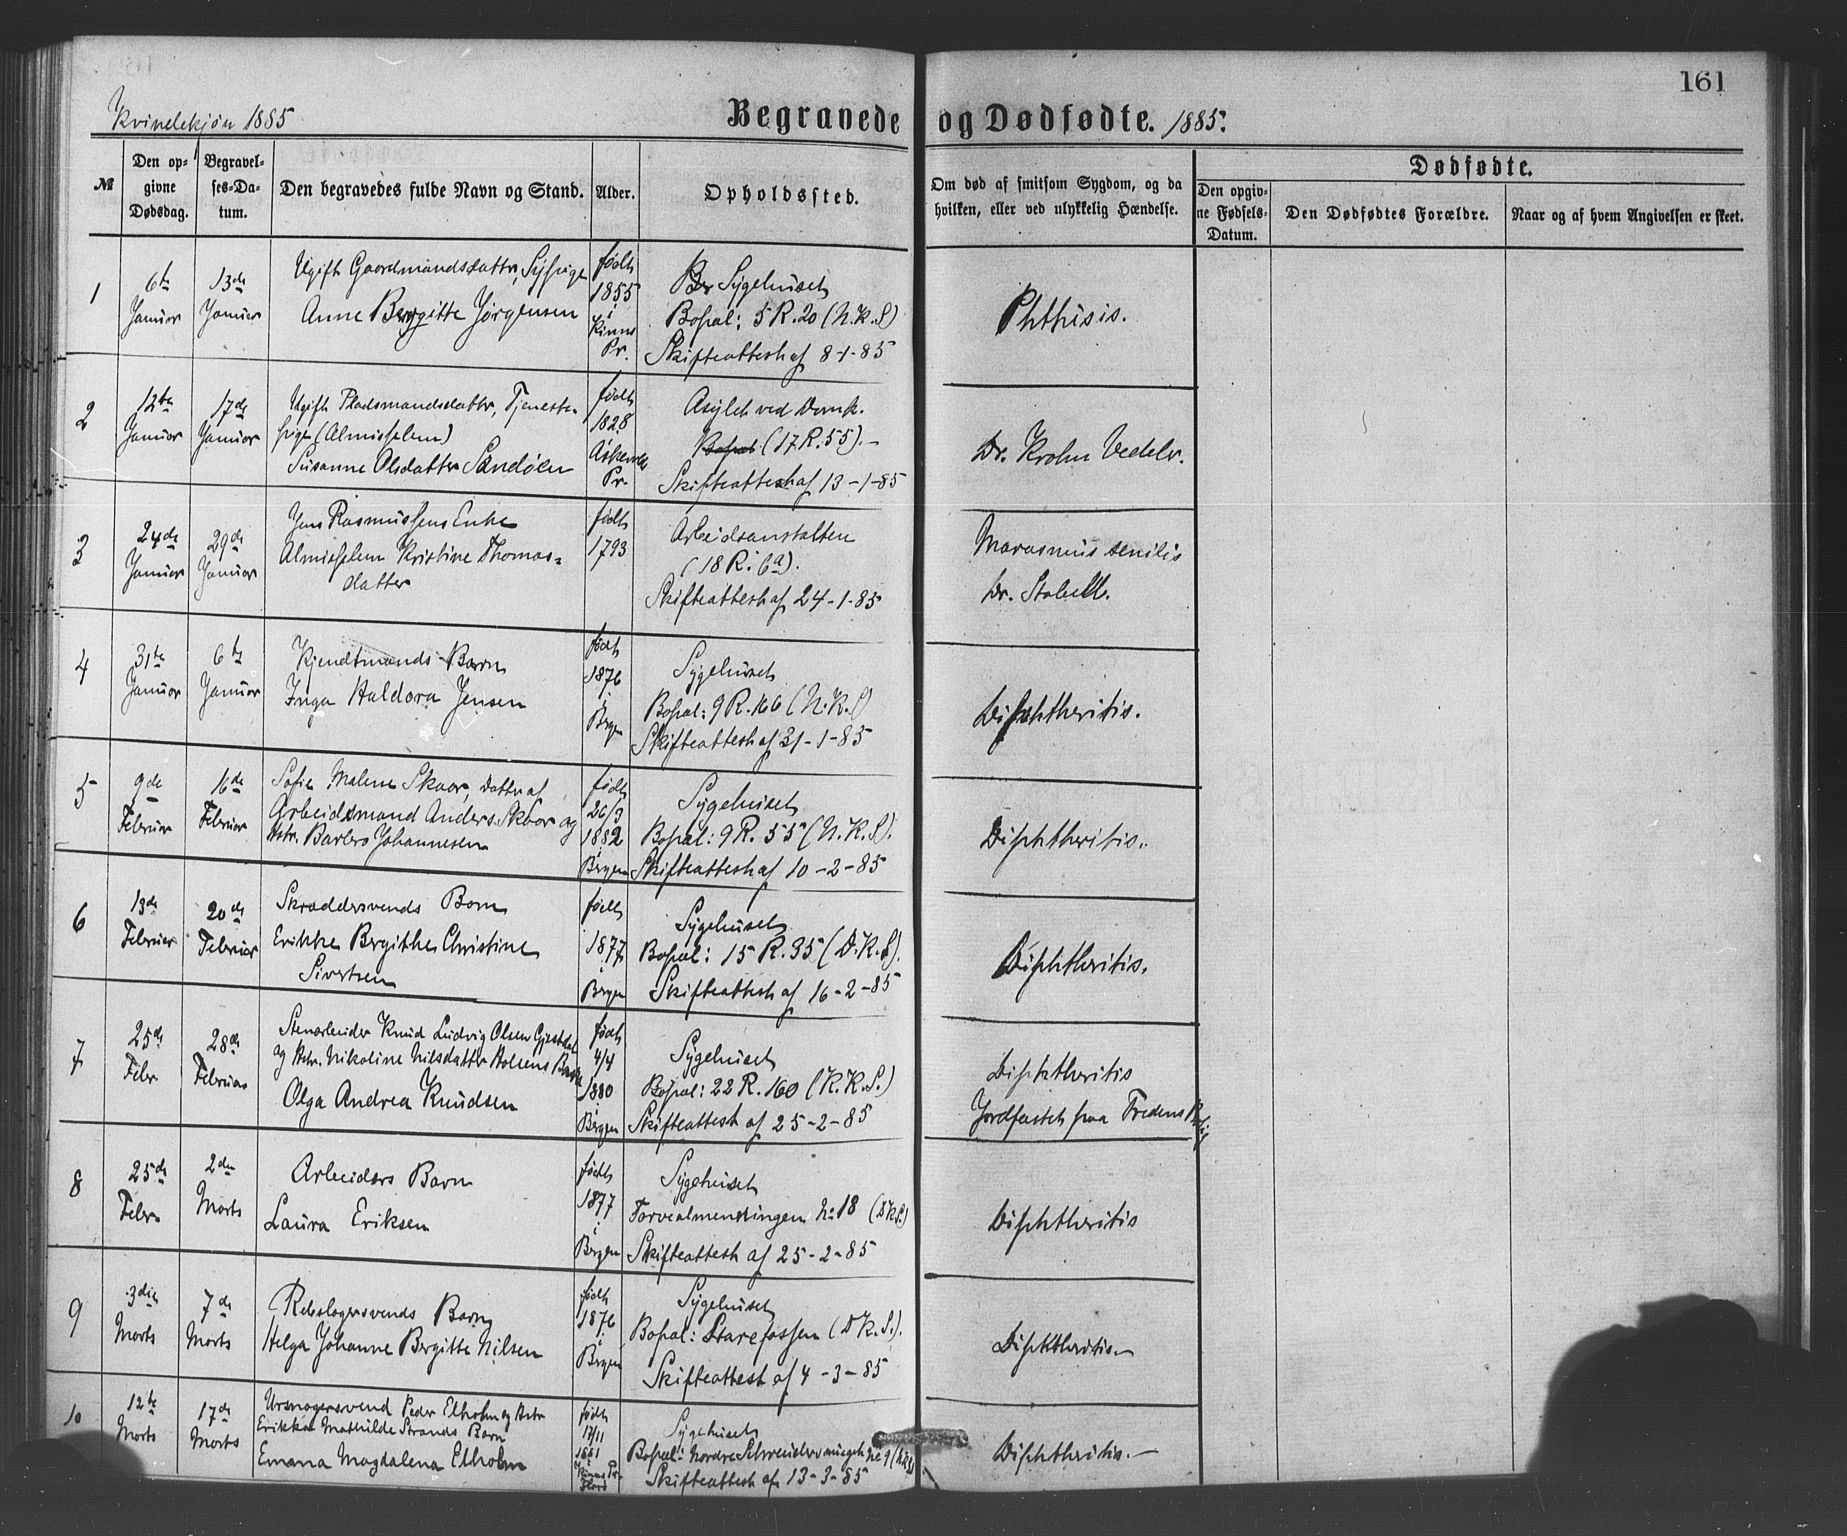 161
Kvindekjøn 1885
Begravede og Dødfødte. 1885.
№
Den opgivne Dødsdag.
Begravelses-Datum.
Den begravedes fulde Navn og Stand.
Alder.
Opholdssted.
Om død af smitsom Sygdom, og da hvilken, eller ved ulykkelig Hændelse.
Dødfødte.
Den opgivne Fødsels-Datum.
Den Dødfødtes Forældre.
Naar og af hvem Angivelsen er skeet.
1
6te Januar
13de Januar
Ugift Gaardmandsdatter, Sypige
Anne Bergitte Jørgensen
født 1855 i Kinns Pr.
Sygehuset
Bopæl: 5 R. 20 (N.K.S)
Skifteattest af 8-1-85
Phthisis.
2
12te Januar
17de Januar
Ugift Pladsmandsdatter, Tjeneste-
pige (Almisselem)
Susanne Olsdatter Sandøen
født 1828 Askevolds Pr
Asylet ved Domk.
Bopæl (17 R. 55).-
Skifteattest af 13-1-85
Dr. Krohn Vedelr.
3
24de Januar
29de Januar
Jens Rasmussens Enke
Almisselem Kristine Thomas=
datter
født 1793
Arbeidsanstalten
(18 R. 6a).
Skifteattest af 24-1-85
Marasmus senilis
Dr. Stabell.
4
31te Januar
6te Januar
Kjendtmands Barn
Inga Haldora Jensen
født 1876 i Bergen
Sygehuset
Bopæl: 9 R. 166 (N.K.S)
Skifteattest af 31-1-85
Diphtheritis.
5
9de Februar
16de Februar
Sofie Malene Skaar, datter af
Arbeidsmand Anders Skaar og
Hstr. Barbro Johannesen
født 26/3 1882 i Bergen
Sygehuset
Bopæl: 9 R. 55 (N.K.S).
Skifteattest af 10-2-85
Diphtheritis.
6
13de Februar
20de Februar
Skraddersvends Barn
Erikke Bergitte Christine
Sivertsen
født 1877 i Bergen
Sygehuset
Bopæl: 15 R. 35 (D.K.S).
Skifteattest af 16-2-85
Diphtheritis.
7
25de Febr
28de Februar
Stenarbeider Knud Ludvig Olsen Gjesdal
og Hstr. Nikoline Nilsdatter Holsens Barn
Olga Andrea Knudsen
født 4/4 1880 i Bergen
Sygehuset
Bopæl: 22 R. 160 (K.K.S.)
Skifteattest af 25-2-85
Diphtheritis
Jordfæstet paa Fredens Bolig
8
25de Febr
2den Marts
Arbeiders Barn
Laura Eriksen
født 1877 i Bergen
Sygehuset
Torvealmendingen No 18 (D.K.S)
Skifteattest af 25-2-85
Diphtheritis
9
3die Marts
7de Marts
Rebslagersvends Barn
Helga Johanne Bergitte Nilsen
født 1876 i Bergen
Sygehuset
Bopæl: Starefossen (D.K.S).
Skifteattest af 4-3-85
Diphtheritis.-
10
12te Marts
17de Marts
Ursmagersvend Peder Elholm og Hstr
Erikka Mathilde Strands Barn
Emana Magdalena Elholm
født 17/11 1881 Kinns Pr. Florø
Sygehuset
Bopæl: Nordre Skreddersmuget No 9 (N.K.S)
Skifteattest af 13-3-85
Diphtheritis.-